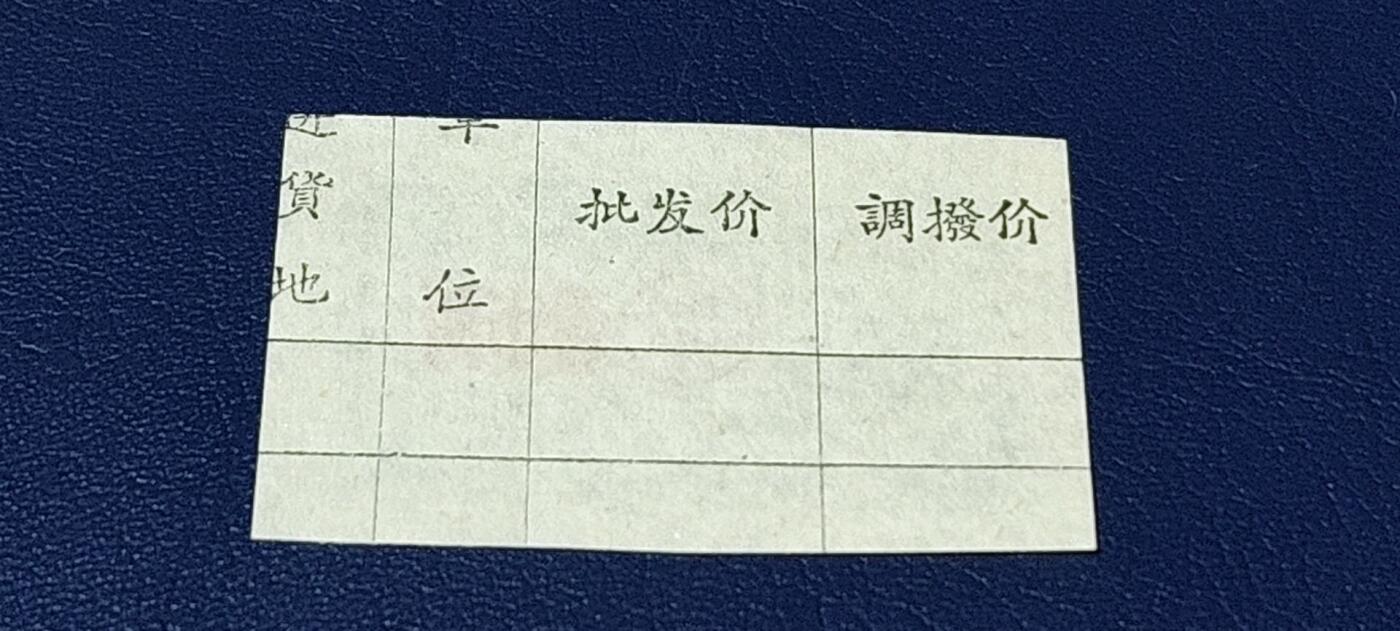 貨地
位
批发价
調撥价